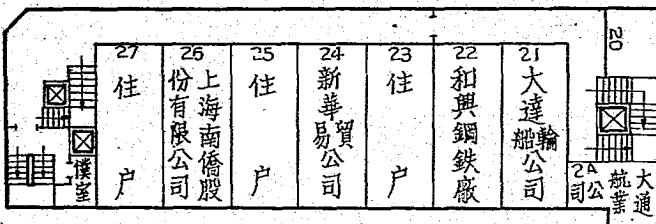 27
住戶
26
上海南僑股
份有限公司
25
住戶
24
新華貿易公司
23
住戶
22
和興鋼鉄廠
21
大達輪船公司
20
2A
大通
航業
公司
僕室